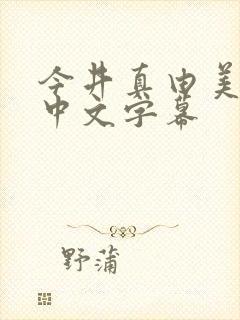 今井真由美
中文字幕
野蒲